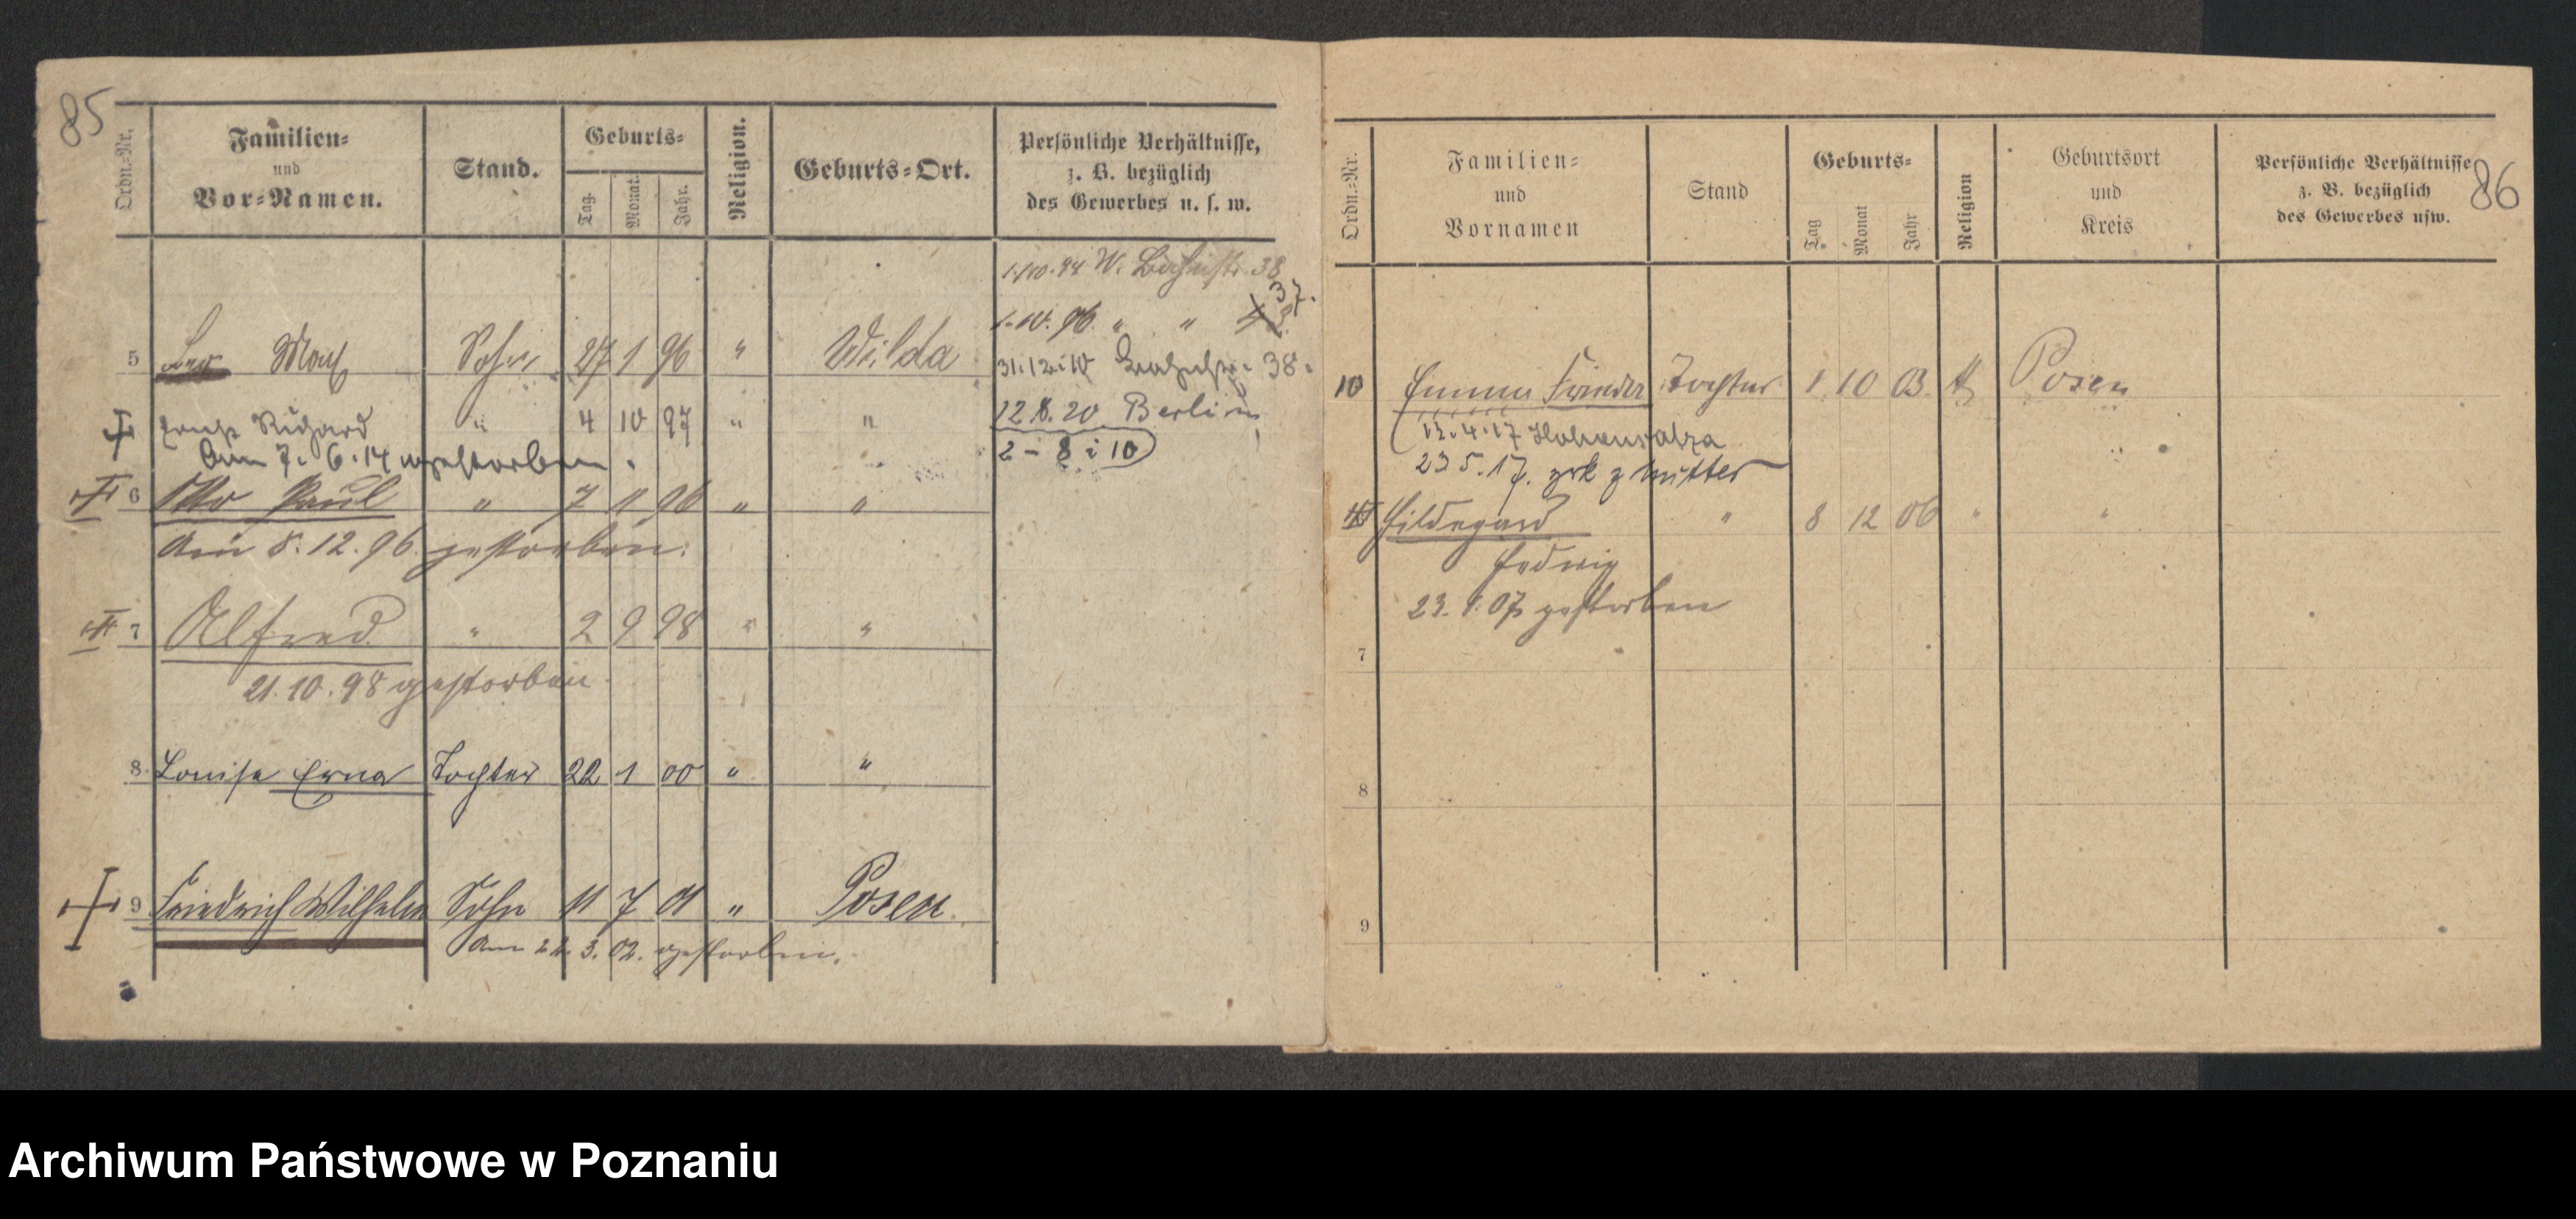 85
Ordn.-Nr.
Familien-
und
Vor-Namen.
Stand.
Geburts-
Tag.
Monat.
Jahr.
Religion.
Geburts-Ort.
Persönliche Verhältnisse,
z. B. bezüglich
des Gewerbes u. s. w.
1./10. 94 W. Bachstr. 38
37.
1.10. 96. " "
5 Max Sohn 27 1 96 " Wilda
31.12.10 38.
Ernst Richard " 4 10 97 " "
12.8.20 Berlin
Am 7. 6. 14 gestorben.
2 - 8 i 10
6 Otto Paul " 7 11 96 " "
Am 8. 12. 96. gestorben.
7 Alfred " 2 9 98 " "
21.10.98 gestorben
8 Louise Erna Tochter 22 1 00 " "
9 Friedrich Wilhelm Sohn 11 7 01 " Posen
Am 22. 3. 02. gestorben.
86
Ordn.-Nr.
Familien-
und
Vornamen
Stand
Geburts-
Tag
Monat
Jahr
Religion
Geburtsort
und
Kreis
Persönliche Verhältnisse
z. B. bezüglich
des Gewerbes usw.
10 Emma Tochter 1 10 03 Posen
12.4.17 Hohensalza
23 5. 17. zrk z Mutter
Hildegard " 8 12 06 " "
Hedwig
23. 1. 07 gestorben
7
8
9
Archiwum Państwowe w Poznaniu